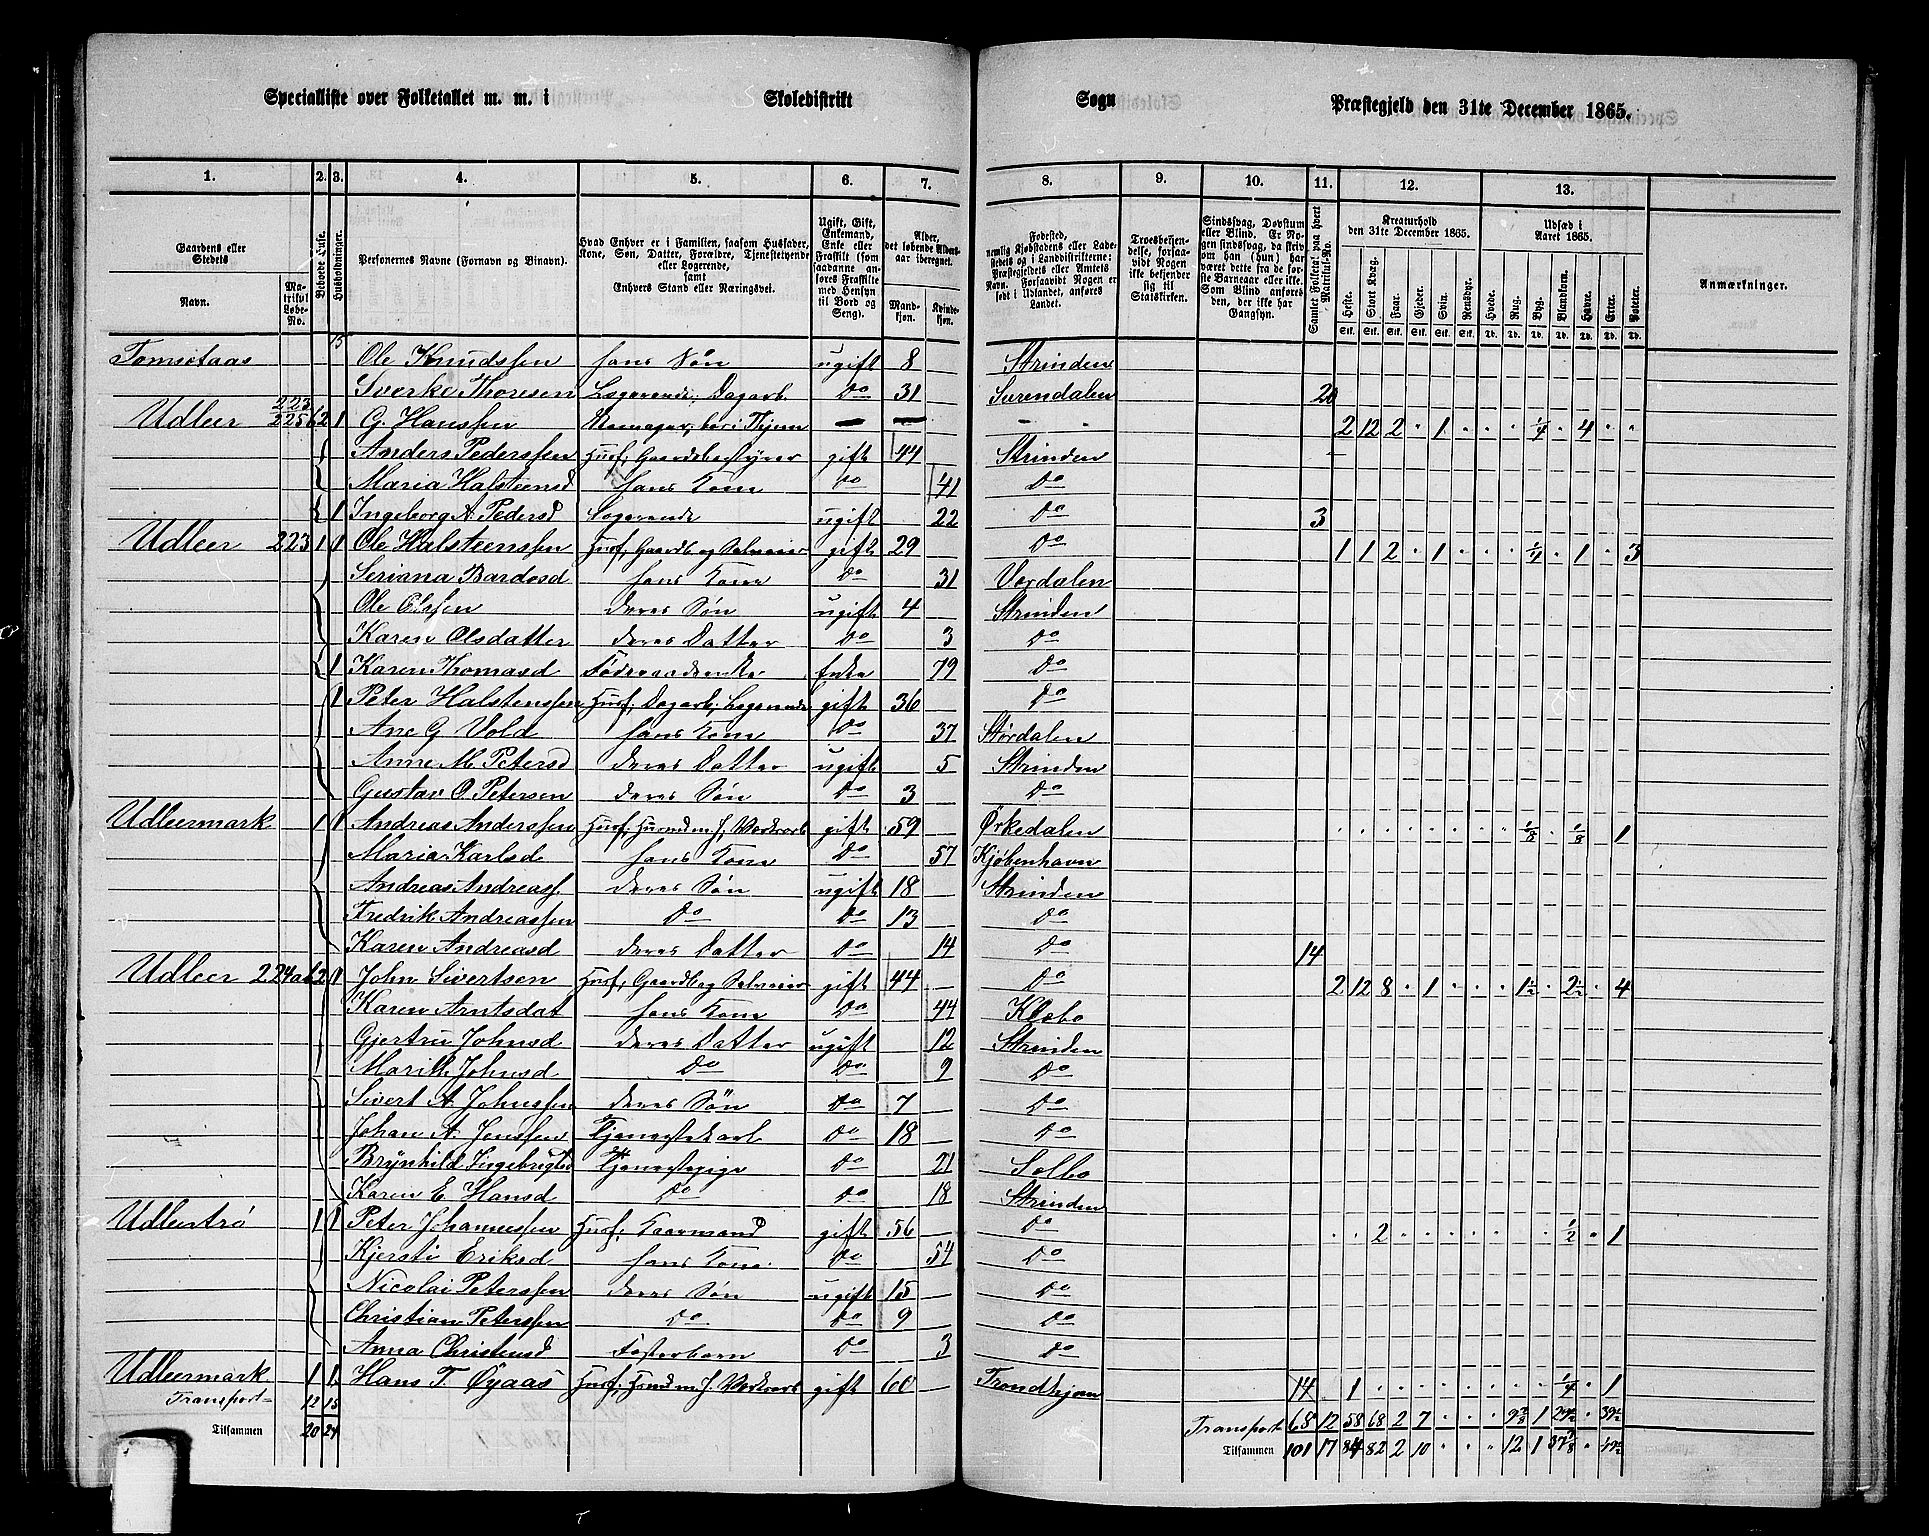 Specialliste over Folketallet m. m. i Skoledistrikt Sogn Præstegjeld den 31te December 1865.
1. 2. 3. 4. 5. 6. 7. 8. 9. 10. 11. 12. 13. 1.
Gaardens eller Stedets Navn. Matrikul Løbe-No. Beboede Huse. Husholdninger. Personernes Navne (Fornavn og Binavn).
Hvad Enhver er i Familien, saasom Husfader, Kone, Søn, Datter, Forældre, Tjenestetyende eller Logerende, samt Enhvers Stand eller Næringsvei.
Ugift, Gift, Enkemand, Enke eller Fraskilt (som saadanne anføres Fraskilte med Hensyn til Bord og Seng).
Alder, det løbende Alders-aar iberegnet. Mandkjøn. Kvindekjøn.
Fødested, nemlig Kjøbstadens eller Ladestedets og i Landdistrikterne: Præstegjeldets eller Amtets Navn. Forsaavidt Nogen er født i Udlandet, anføres Landet.
Troesbekjendelse, forsaavidt Nogen ikke bekjender sig til Statskirken.
Sindssvag, Døvstum eller Blind. Er Nogen sindssvag, da skrives om han (hun) har været dette fra de første Barneaar eller ikke. Som Blind anføres den, der ikke har Gangsyn.
Samlet Folketal paa hvert Matrikul-No.
Kreaturhold den 31te December 1865. Heste. Stort Kvæg. Faar. Gjeder. Svin. Rensdyr.
Udsæd i Aaret 1865. Hvede. Rug. Byg. Blandkorn. Havre. Erter. Poteter.
Anmærkninger.
Tomsetaas 15 Ole Knudssen hans Søn ugift 8 Strinden
Sverke Thoresen Logerende; Dagarb. Do 31 Surendalen 20
Udleer 223 225b 2 1 G. Hanssen - - - - 2 12 2 . 1 . . . 1/4 . 4 . .
Anders Pederssen Husf; Gaardsbestyrer gift 44 Strinden
Maria Halsteensd hans Kone Do 41 Do
1 Ingeborg A. Pedersd Logerende ugift 22 Do 3
Udleer 223 1 1 Ole Halsteenssen Husf; Gaardb og Selveier gift 29 Do 1 1 2 . 1 . . . 1/4 . 1 . 3
Seriana Bardosd hans Kone Do 31 Verdalen
Ole Olssen deres Søn ugift 4 Strinden
Karen Olsdatter deres Datter Do 3 Do
1 Karen Thomasd Føderaadsenke Enke 79 Do
1 Peter Halstenssen Husf; Dagarb; Logerende gift 36 Do
Ane G Vold hans Kone Do 37 Størdalen
Anne M. Petersd deres Datter ugift 5 Strinden
Gustav O. Petersen deres Søn Do 3 Do
Udleermark 1 1 Andreas Anderssen Husf; Husmd m. J. Værkarb gift 59 Ørkedalen . . . . . . . . 1/8 . 1/8 . 1
Maria Karlsd hans Kone Do 57 Kjøbenhavn
Andreas Andreass. deres Søn ugift 18 Strinden
Fredrik Andreassen Do Do 13 Do
Karen Andreasd deres Datter Do 14 Do 14
Udleer 224ab 2 1 John Sivertsen Husf; Gaardb og Selveier gift 44 Do 2 12 8 . 1 . . . 1 1/2 . 2 1/2 . 4
Karen Arntsdat hans Kone Do 44 Klæbo
Gjertru Johnsd deres Datter ugift 12 Strinden
Marith Johnsd Do Do 9 Do
Sivert A. Johnssen deres Søn Do 7 Do
Johan A. Jenssen Tjenestekarl Do 18 Do
Brynhild Ingebrigtsd Tjenestepige Do 21 Selbo
Karen E. Hansd Do Do 18 Strinden
Udleertrø 1 1 Peter Johannessen Husf; Kaarmand gift 56 Do . . 2 . . . . . . . 1/2 . 1
Kjersti Eriksd hans Kone Do 54 Do
Nicolai Peterssen deres Søn ugift 15 Do
Christian Peterssen Do Do 9 Do
Anna Christensd Fosterbarn Do 3 Do
Udleermark 1 1 Hans T. Øyaas Husf; Husmd m. J. Værkarb gift 60 Trondhjem 14 . 1 . . . . . . . 1/4 . 1
Transport 12 15 Transport 68 12 58 68 2 7
Tilsammen 20 24 Tilsammen 101 17 84 82 2 10 . . . 12 1